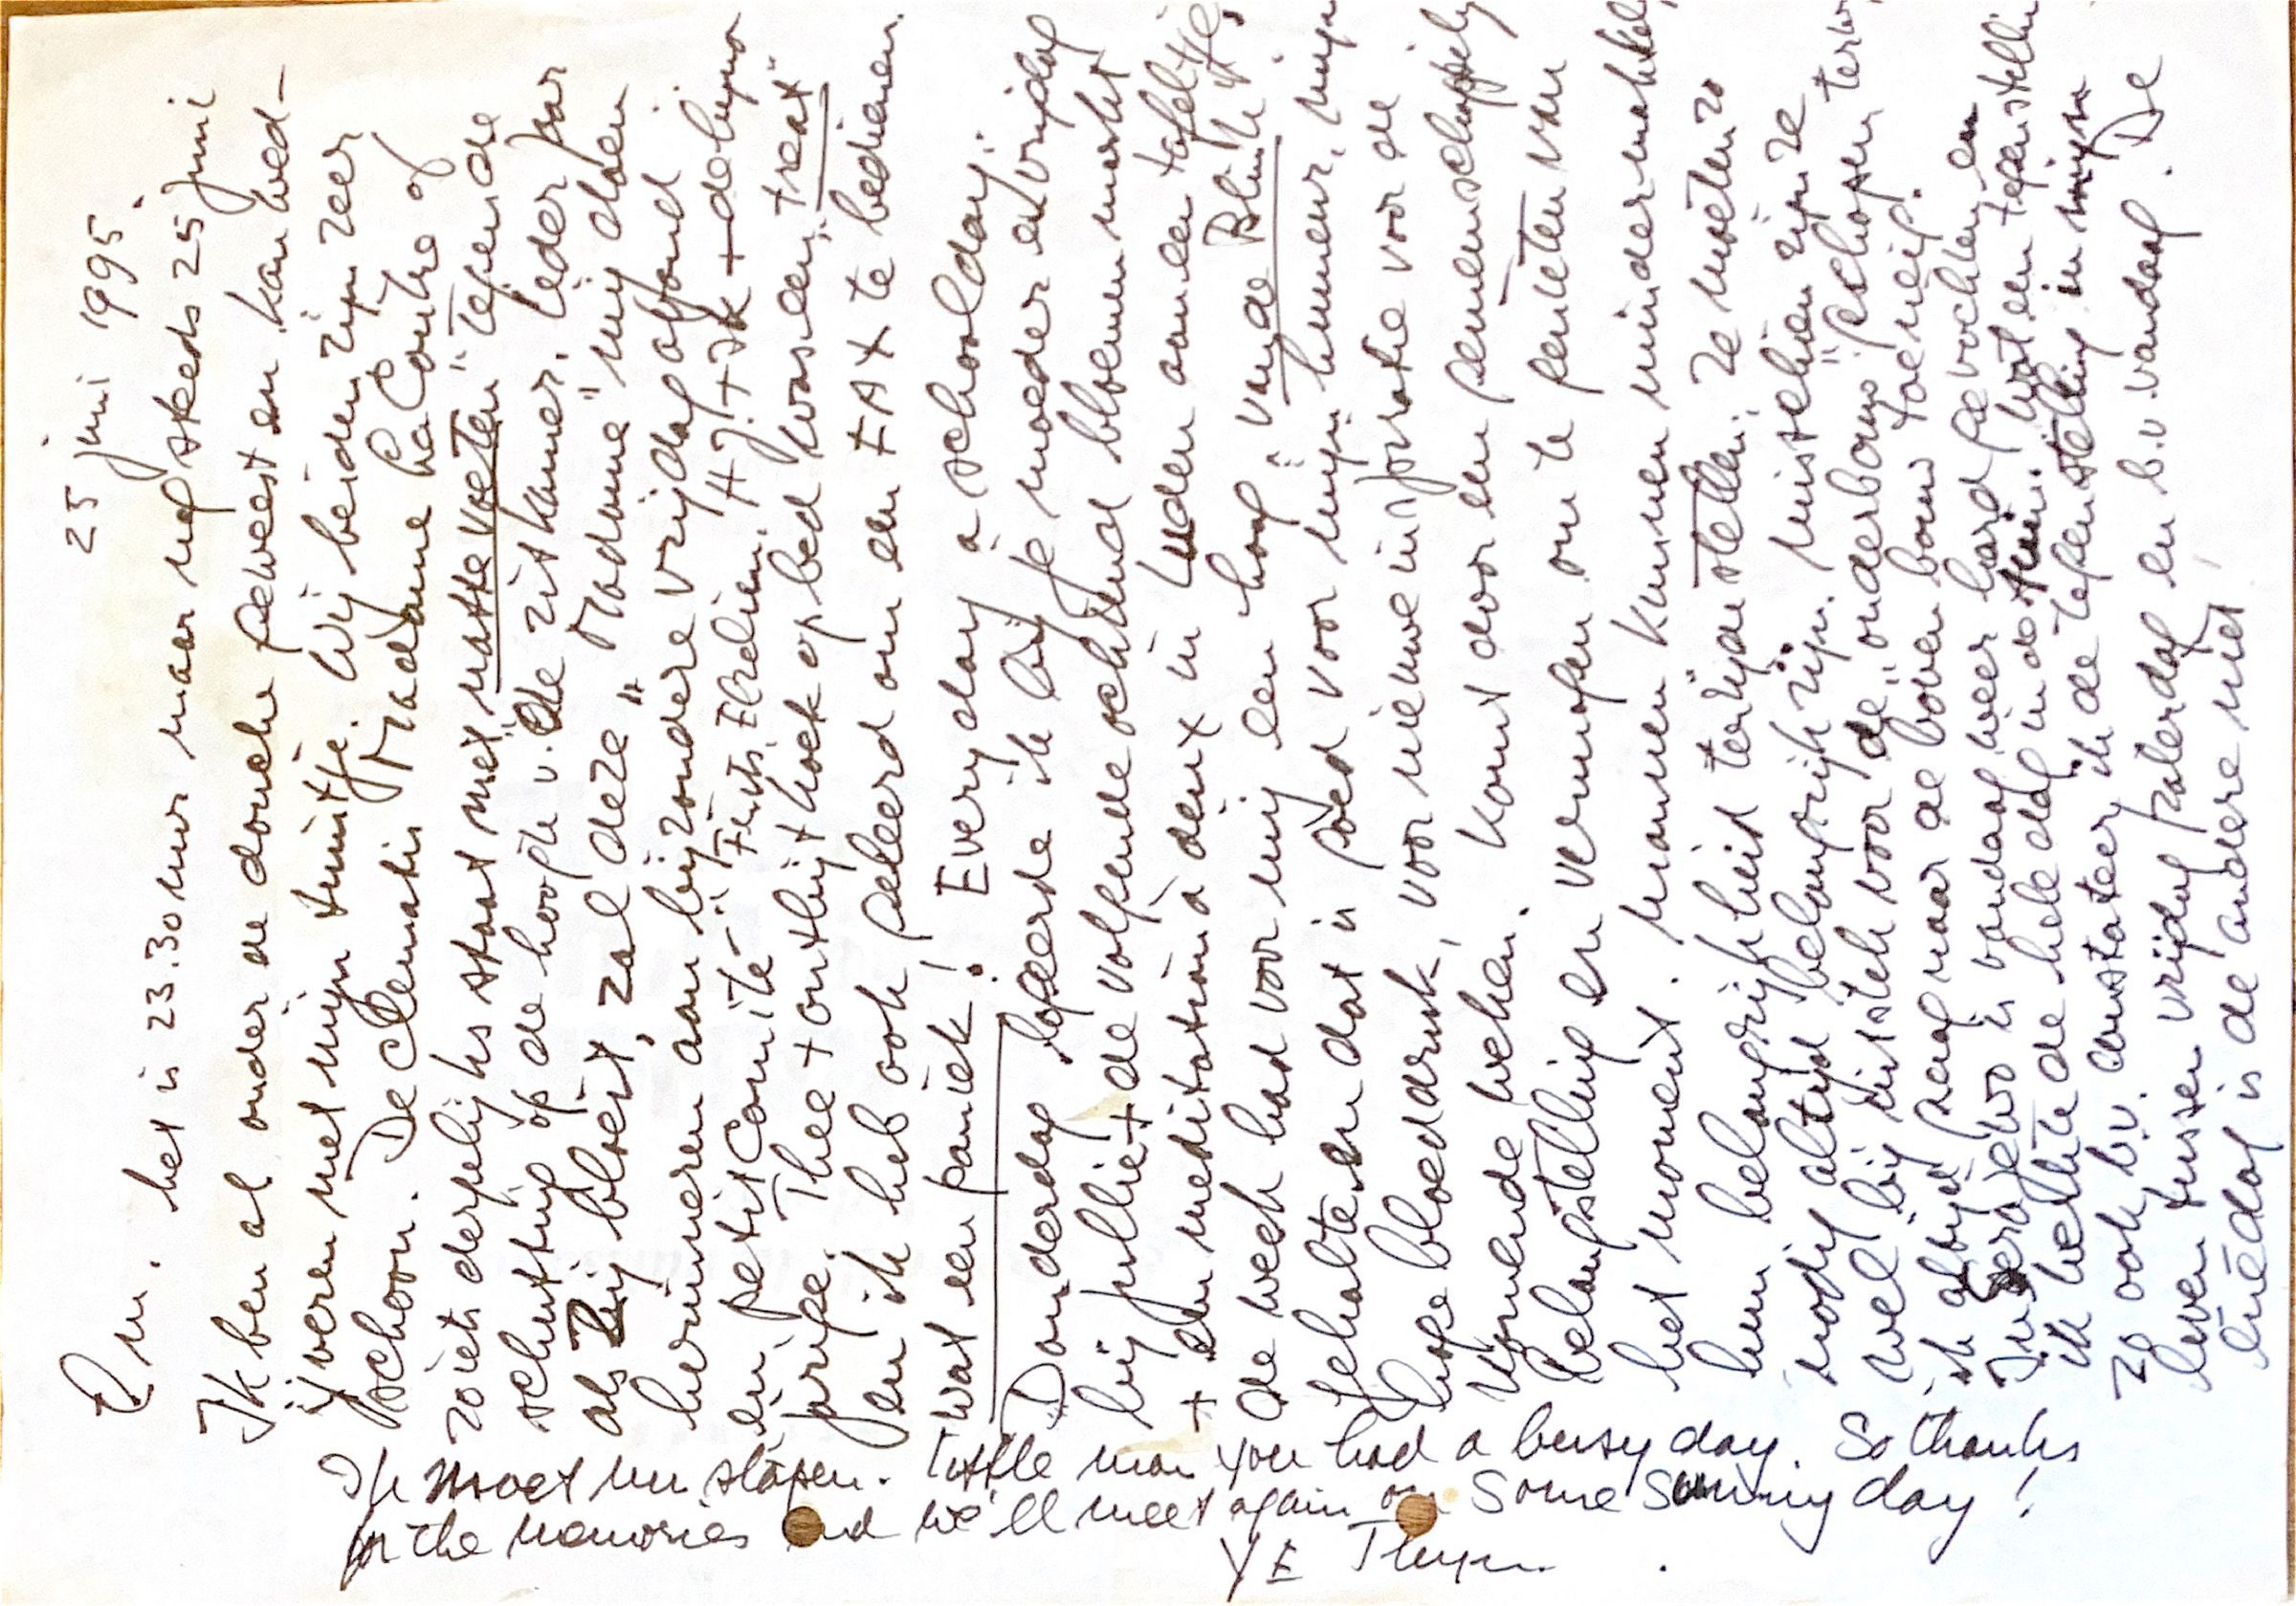 25 juni 1995.
P.M. het is 23.30 uur maar nog steeds 25 juni
Ik ben al onder de douche geweest en kan wed-
ijveren met mijn tuintje. Wij beiden zijn zeer
schoon. De Clematis Madame La Contre of
zoiets dergelijks staat met "natte voeten" tegen de
schutting op de hoogte v. de zitkamer. Ieder jaar
als zij bloeit, zal deze "Madame" mij doen
herinneren aan bijzondere vrijdagavond:
en petit comité - : Frits, Eveline. H.J. + ik + de lyna
grijpe. Thee + ontbijtkoek op bed was een "treat"
en ik heb ook geleerd om een FAX te bedienen.
Wat een paniek! Everyday a schoolday:
Donderdag logeerde ik bij je moeder en vrijdag
bij jullie + de volgende ochtend bloemenmarkt
+ een meditation à deux in Luden aan een tafeltje.
de week had voor mij een hoog "van de Blink" 
gehalte en dat is goed voor mijn humeur, mijn
hoge bloeddruk, voor nieuwe inspiratie voor de
komende weken. Komt door een gemeenschappelijk
belangstelling en vermogen om te genieten van
het moment. Mannen kunnen minder makkelijk
hun belangrijkheid terzijde stellen: ze moeten zo
nodig altijd belangrijk zijn. Misschien zijn ze
wel "bij uitstek voor de "onderbouw" geschapen terwijl
ik altijd graag naar de bovenbouw toe neig.
In Serajewo is vandaag weer hard gevochten en
ik werkte de hele dag in de tuin. Wat een tegenstelling
zo ook bv. constateer ik de tegenstelling in mijn
leven tussen vrijdag zaterdag en b.v. vandaag. De
ene dag is de andere niet
Ik moet nu slapen. Little man you had a busy day. So thanks
for the memories and we'll meet again on some sunny day!
YE Thyn.